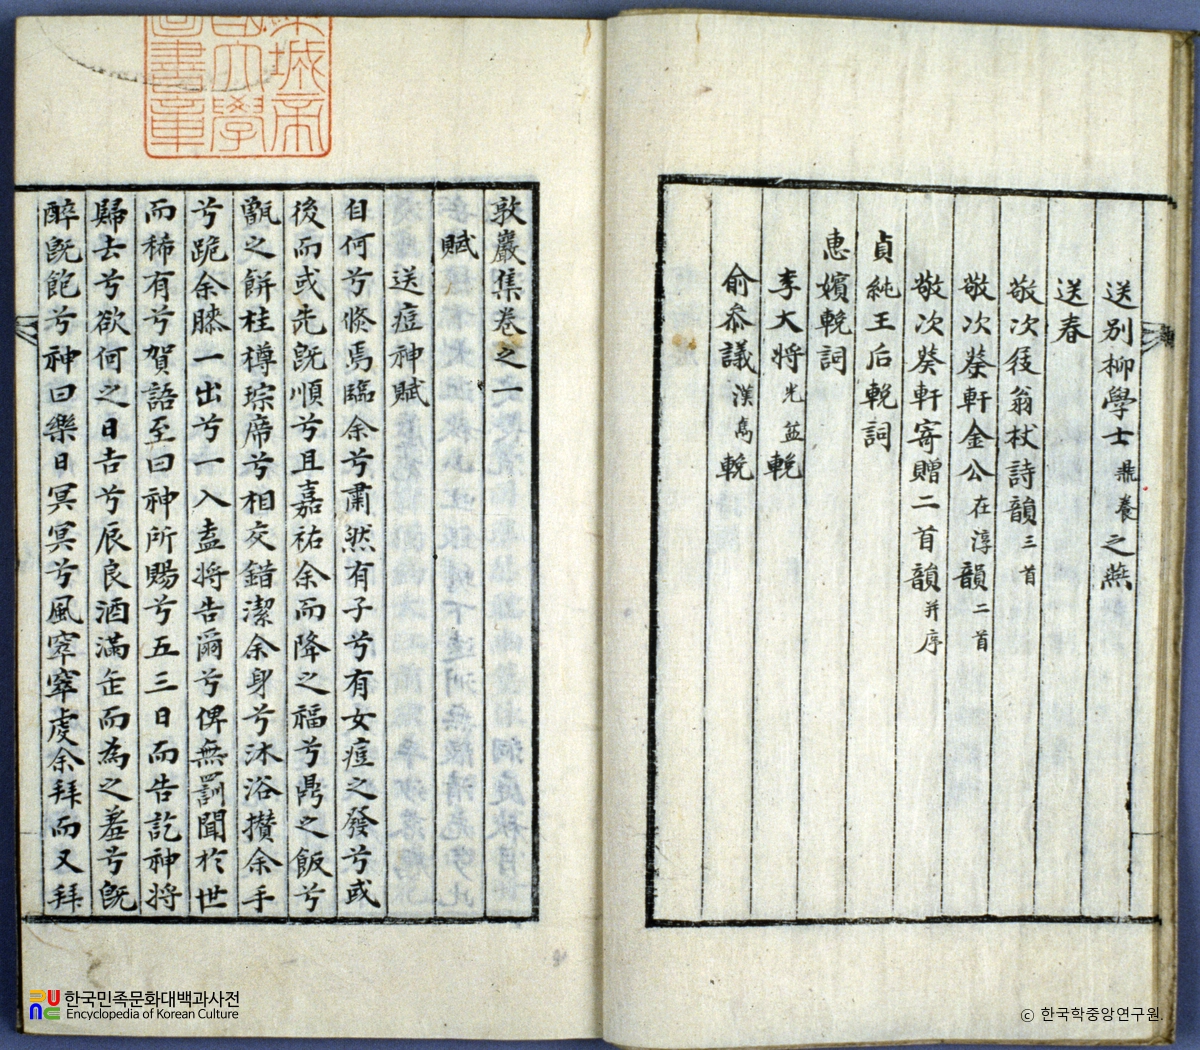 送別柳學士鼎養之燕
送春
敬次稼翁杖詩韻三首
敬次螢軒金公在淳韻二首
敬次葵軒寄贈二首韻并序
貞純王后輓詞
惠嬪輓詞
李大將光益輓
俞叅議漢寯輓
敦巖集卷之一
賦
送痘神賦
自何兮倐焉臨余兮肅然有子兮有女痘之發兮或
後而或先旣順兮且嘉祐余而降之福兮鼎之飯兮
甑之餠桂樽琮席兮相交錯潔余身兮沐浴攢余手
兮跪余膝一出兮一入盍將告爾兮俾無罰聞於世
而稀有兮賀語至曰神所賜兮五三日而告訖神將
歸去兮欲何之日吉兮辰良酒滿缶而為之羞兮旣
醉旣飽兮神曰樂日冥冥兮風窣窣虔余拜而又拜
城帝
大學
圖書章
한국민족문화대백과사전
Encyclopedia of Korean Culture
ⓒ 한국학중앙연구원.